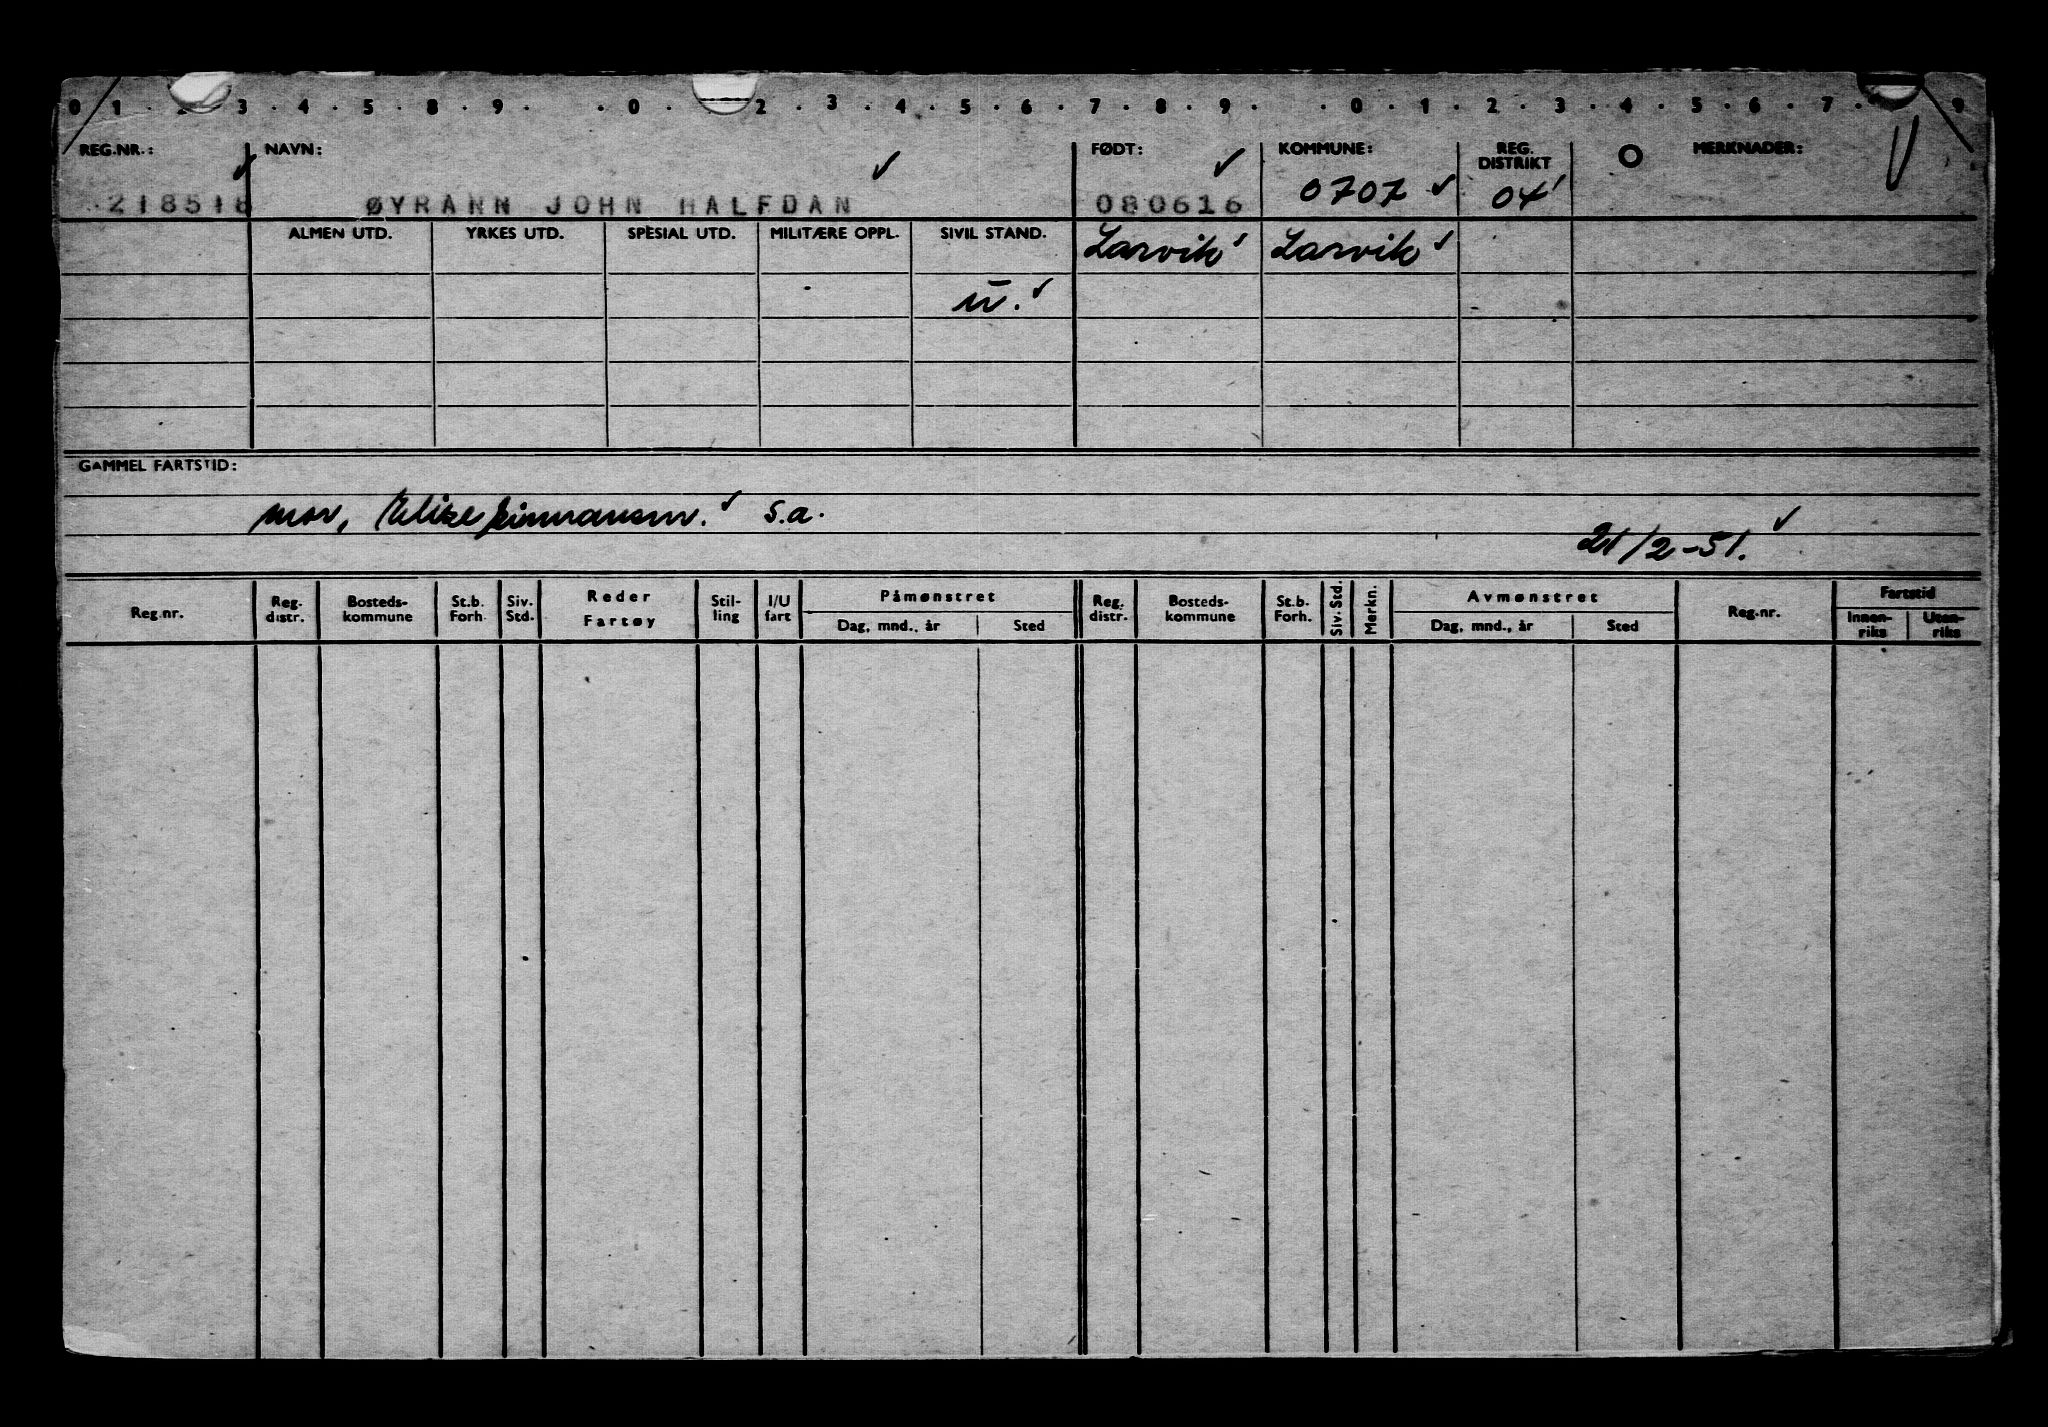 0 1 . 2 . 3 . 4 . 5 . 8 . 9 . . 0 . . 2 . 3 . 4 . 5 . 6 . 7 . 8 . 9 . . 0 . 1 . 2 . 3 . 4 . 5 . 6 . 7 . 9
REG.NR.: NAVN: FØDT: KOMMUNE: REG. DISTRIKT O MERKNADER:
218518 ØYRANN JOHN HALFDAN 080616 0707 04
ALMEN UTD. YRKES UTD. SPESIAL UTD. MILITÆRE OPPL. SIVIL STAND. Larvik Larvik
u.
GAMMEL FARTSTID:
mor, Elise s.a.
21/2-51.
Reg.nr. Reg. distr. Bosteds-kommune St.b. Forh. Siv. Std. Reder Fartøy Stil-ling I/U fart Påmønstret Dag, mnd., år Sted Reg. distr. Bosteds-kommune St.b. Forh. Siv. Std. Merkn. Avmønstret Dag, mnd., år Sted Reg.nr. Fartstid Innen-riks Uten-riks